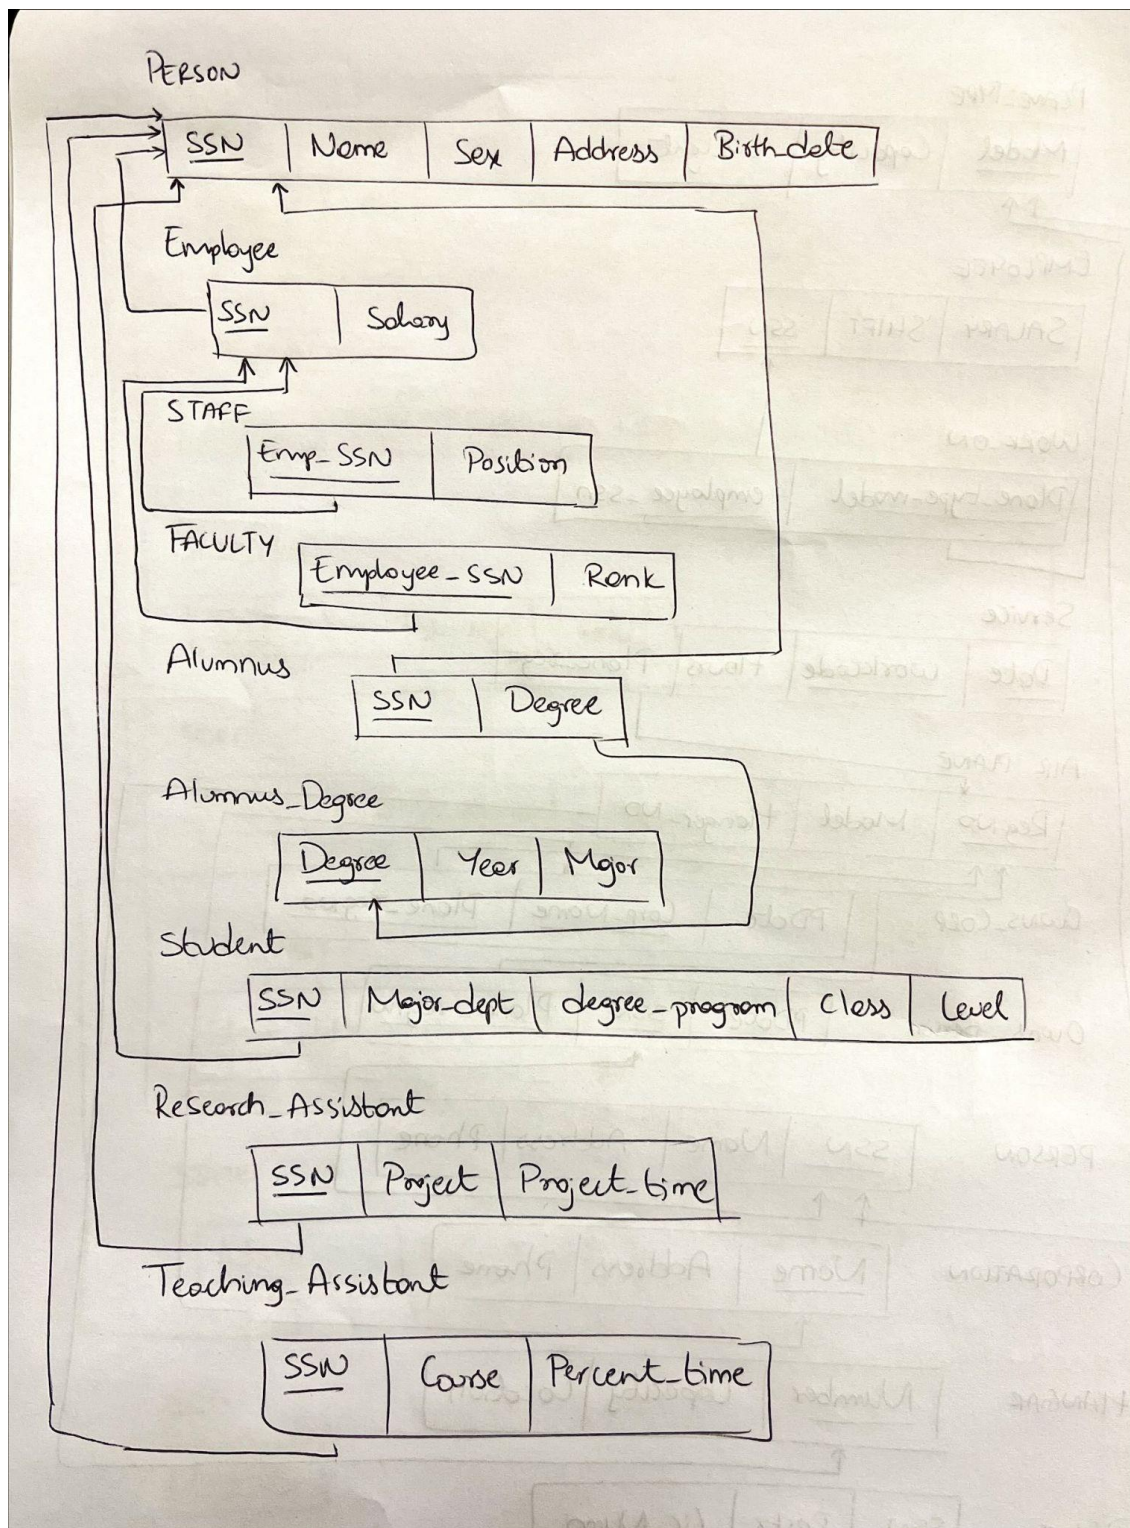 PERSON
SSN Name Sex Address Birth_date
Employee
SSN Salary
STAFF
Emp_SSN Position
FACULTY
Employee_SSN Rank
Alumnus
SSN Degree
Alumnus_Degree
Degree Year Major
Student
SSN Major_dept degree_program Class Level
Research_Assistant
SSN Project Project_time
Teaching_Assistant
SSN Course Percent_time